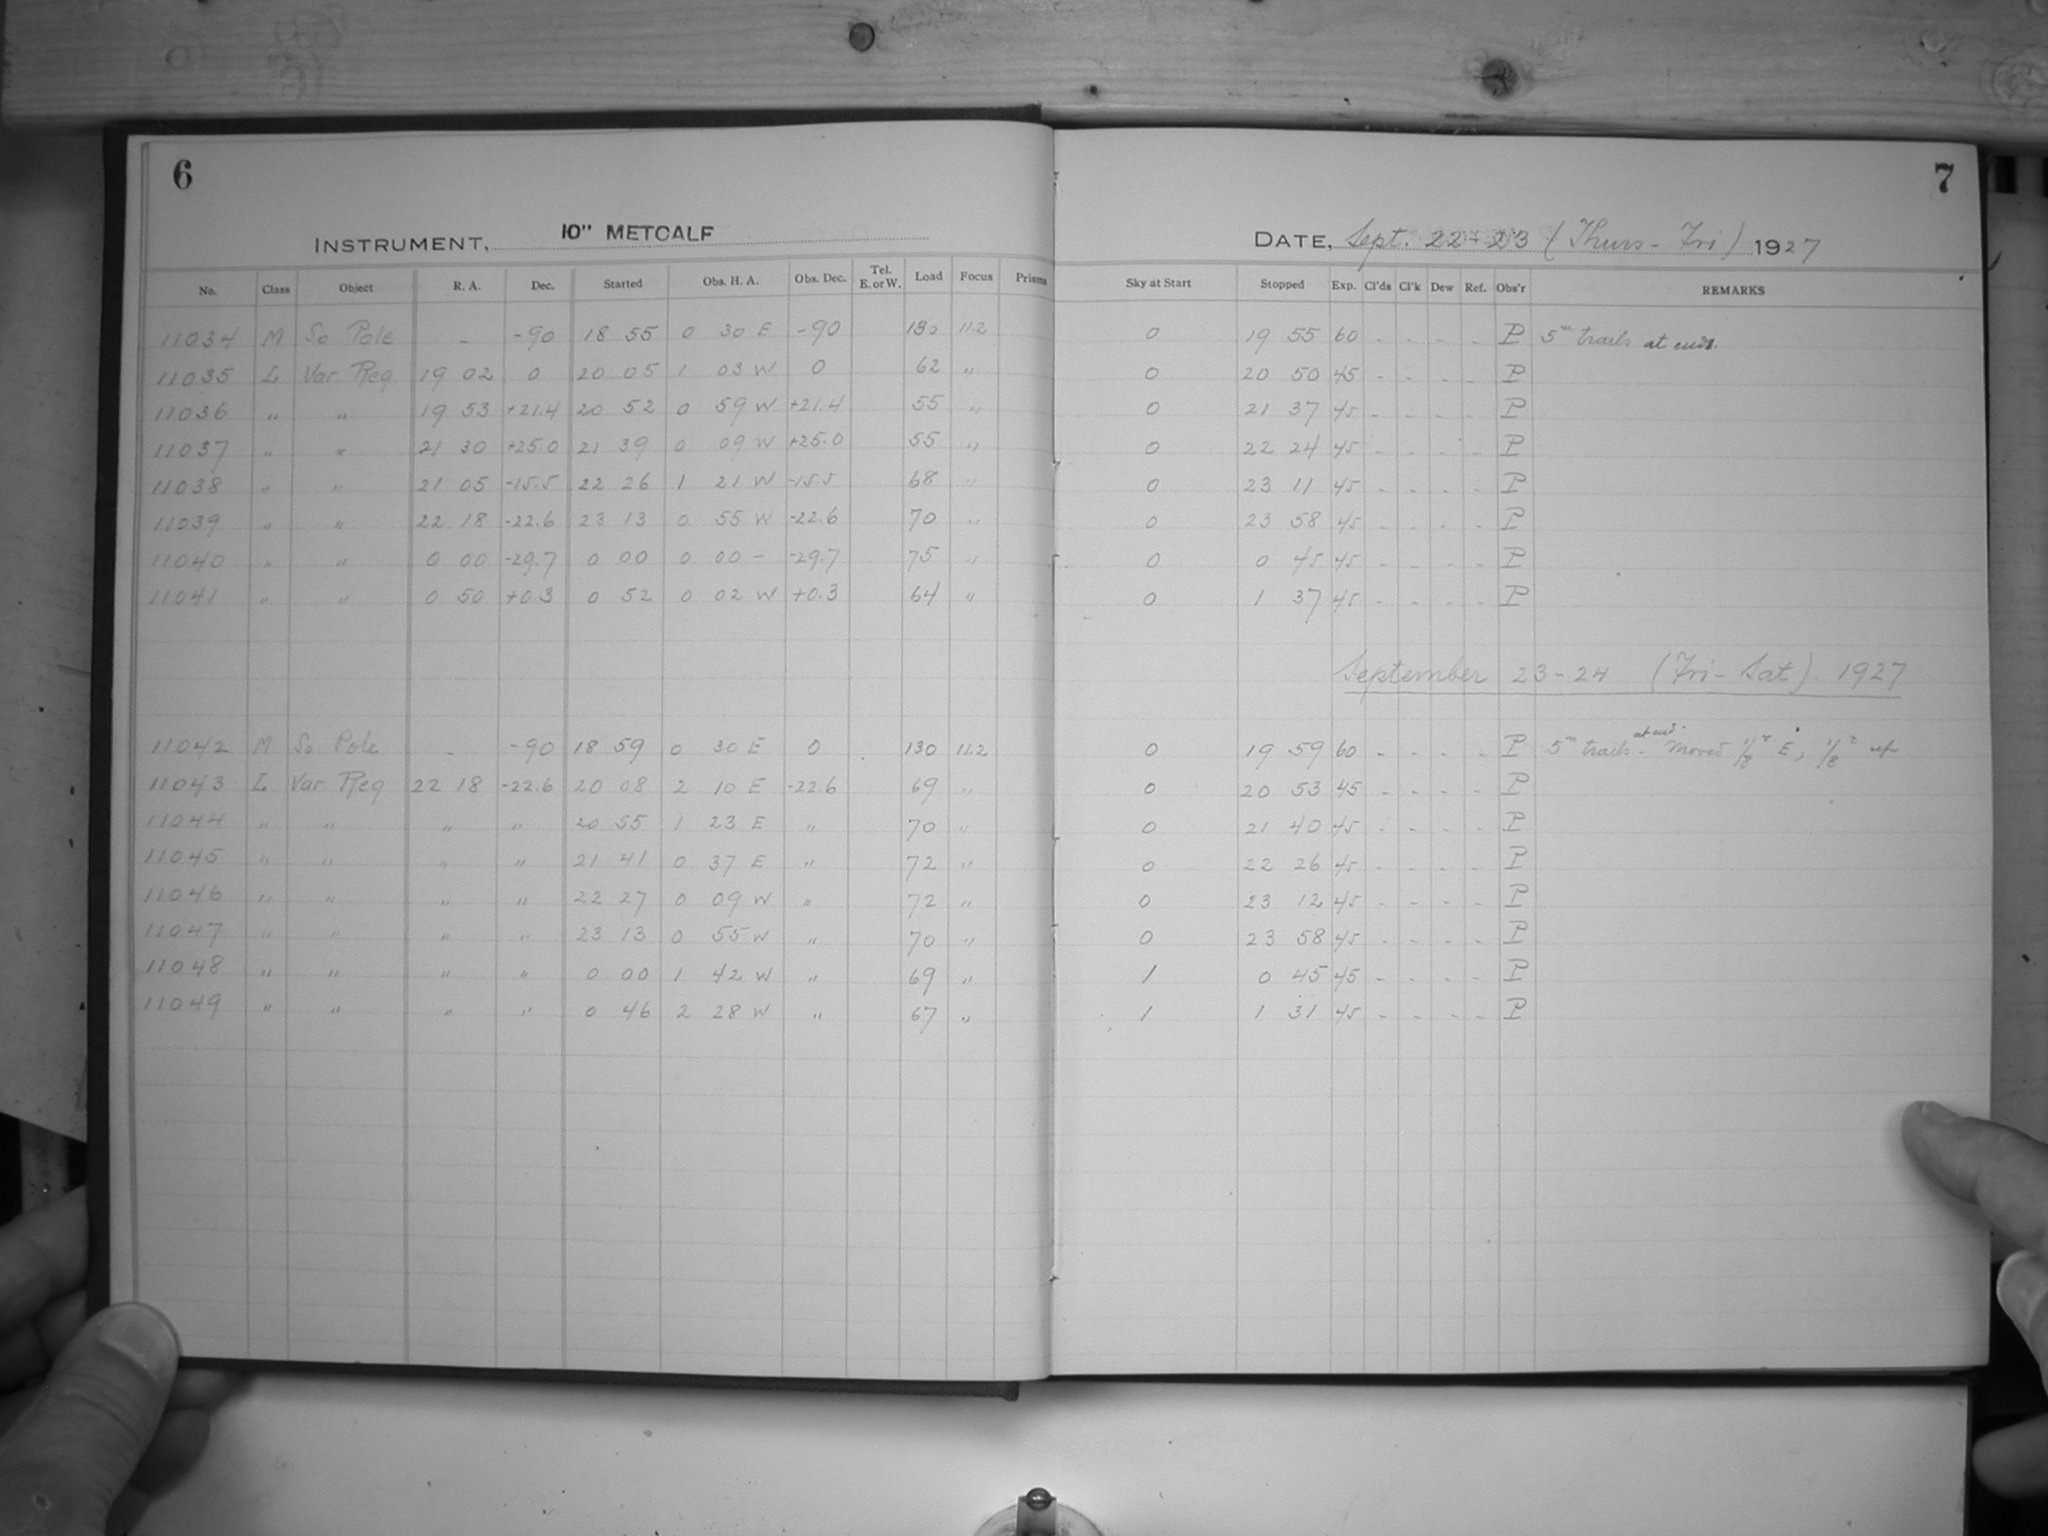 6
7
INSTRUMENT, 10" METCALF
DATE, Sept. 22-23 (Thurs-Fri) 1927
No. Class Object R. A. Dec. Started Obs. H. A. Obs. Dec. Tel. E. or W. Load Focus Prisms Sky at Start Stopped Exp. Cl'ds Cl'k Dew Ref. Obs'r REMARKS
11034 M So Pole - -90 18 55 0 30 E -90 130 11.2 0 19 55 60 - - - - P 5m trails at ends.
11035 L Var Reg 19 02 0 20 05 1 03 W 0 62 " 0 20 50 45 - - - - P
11036 " " 19 53 +21.4 20 52 0 59 W +21.4 55 " 0 21 37 45 - - - - P
11037 " " 21 30 +25.0 21 39 0 09 W +25.0 55 " 0 22 24 45 - - - - P
11038 " " 21 05 -15.5 22 26 1 21 W -15.5 68 " 0 23 11 45 - - - - P
11039 " " 22 18 -22.6 23 13 0 55 W -22.6 70 " 0 23 58 45 - - - - P
11040 " " 0 00 -29.7 0 00 0 00 - -29.7 75 " 0 0 45 45 - - - - P
11041 " " 0 50 +0.3 0 52 0 02 W +0.3 64 " 0 1 37 45 - - - - P
September 23-24 (Fri-Sat) 1927
11042 M So Pole - -90 18 59 0 30 E 0 130 11.2 0 19 59 60 - - - - P 5m trails at end - moved 1/8 E, 1/8 up
11043 L Var Reg 22 18 -22.6 20 08 2 10 E -22.6 69 " 0 20 53 45 - - - - P
11044 " " " " 20 55 1 23 E " 70 " 0 21 40 45 - - - - P
11045 " " " " 21 41 0 37 E " 72 " 0 22 26 45 - - - - P
11046 " " " " 22 27 0 09 W " 72 " 0 23 12 45 - - - - P
11047 " " " " 23 13 0 55 W " 70 " 0 23 58 45 - - - - P
11048 " " " " 0 00 1 42 W " 69 " 1 0 45 45 - - - - P
11049 " " " " 0 46 2 28 W " 67 " 1 1 31 45 - - - - P